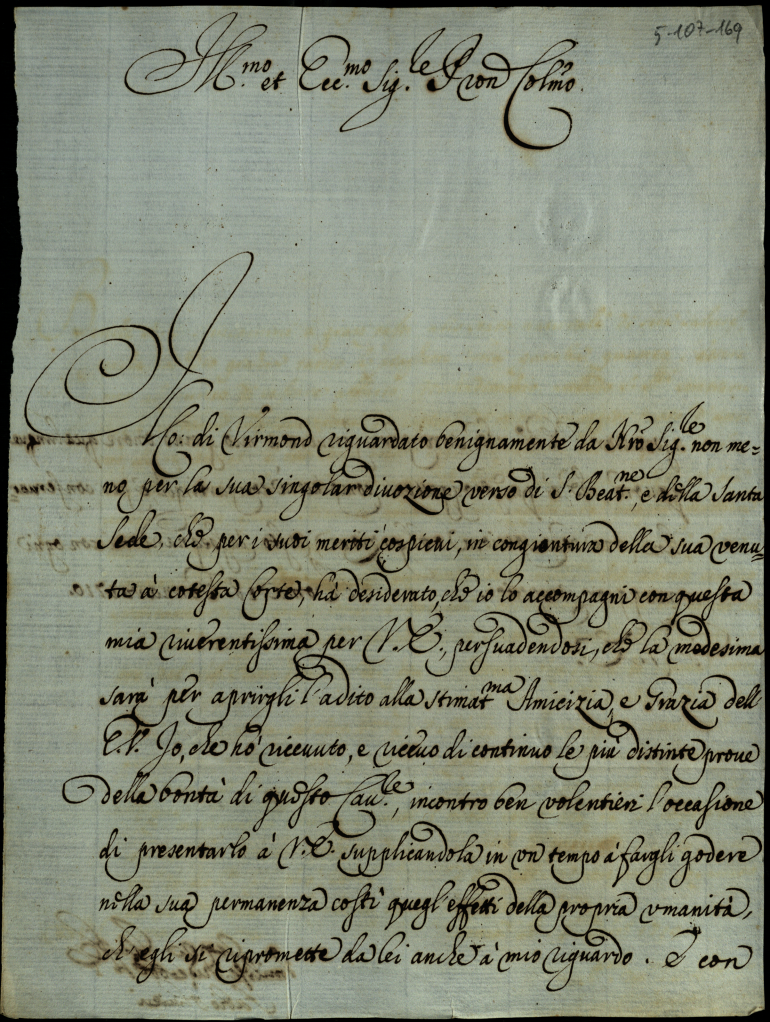 5-107-169
Ill.mo et Ecc.mo Sig.le Pron Colmo.
Il Co: di Virmond riguardato benignamente da Nro Sig.le non me=
no per la sua singolar divozione verso di S. Beat.ne, e della Santa
Sede, che per i suoi meriti cospicui, in congiontura della sua venu=
ta à cotesta Corte, hà desiderato, che io lo accompagni con questa
mia riverentissima per V.E., persuadendosi, che la medesima
sarà per aprirgli l'adito alla stimat.ma Amicizia, e Grazia dell'
E.V. Io, che hò ricevuto, e ricevo di continuo le più distinte prove
della bontà di questo Cau.le, incontro ben volentieri l'occasione
di presentarlo à V.E. supplicandola in un tempo à fargli godere
nella sua permanenza costì quegl'effetti della propria umanità,
ch'egli si ripromette da lei anche à mio riguardo. E con